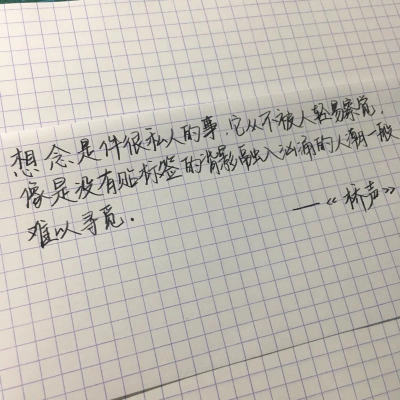 想念是件很私人的事,它从不被人轻易察觉.
像是没有贴标签的背影融入汹涌的人潮一般
难以寻觅.
——《桥声》